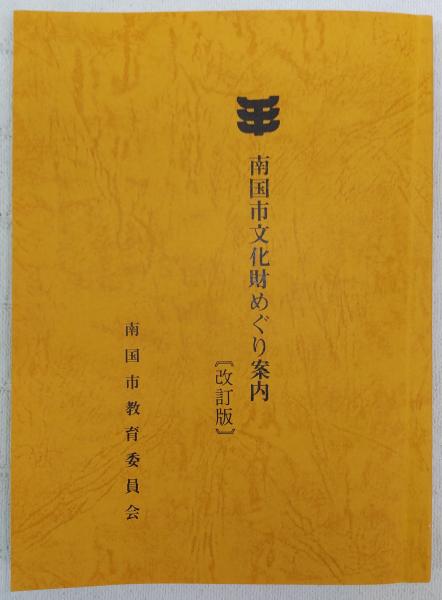 南国市文化財めぐり案内
〔改訂版〕
南国市教育委員会